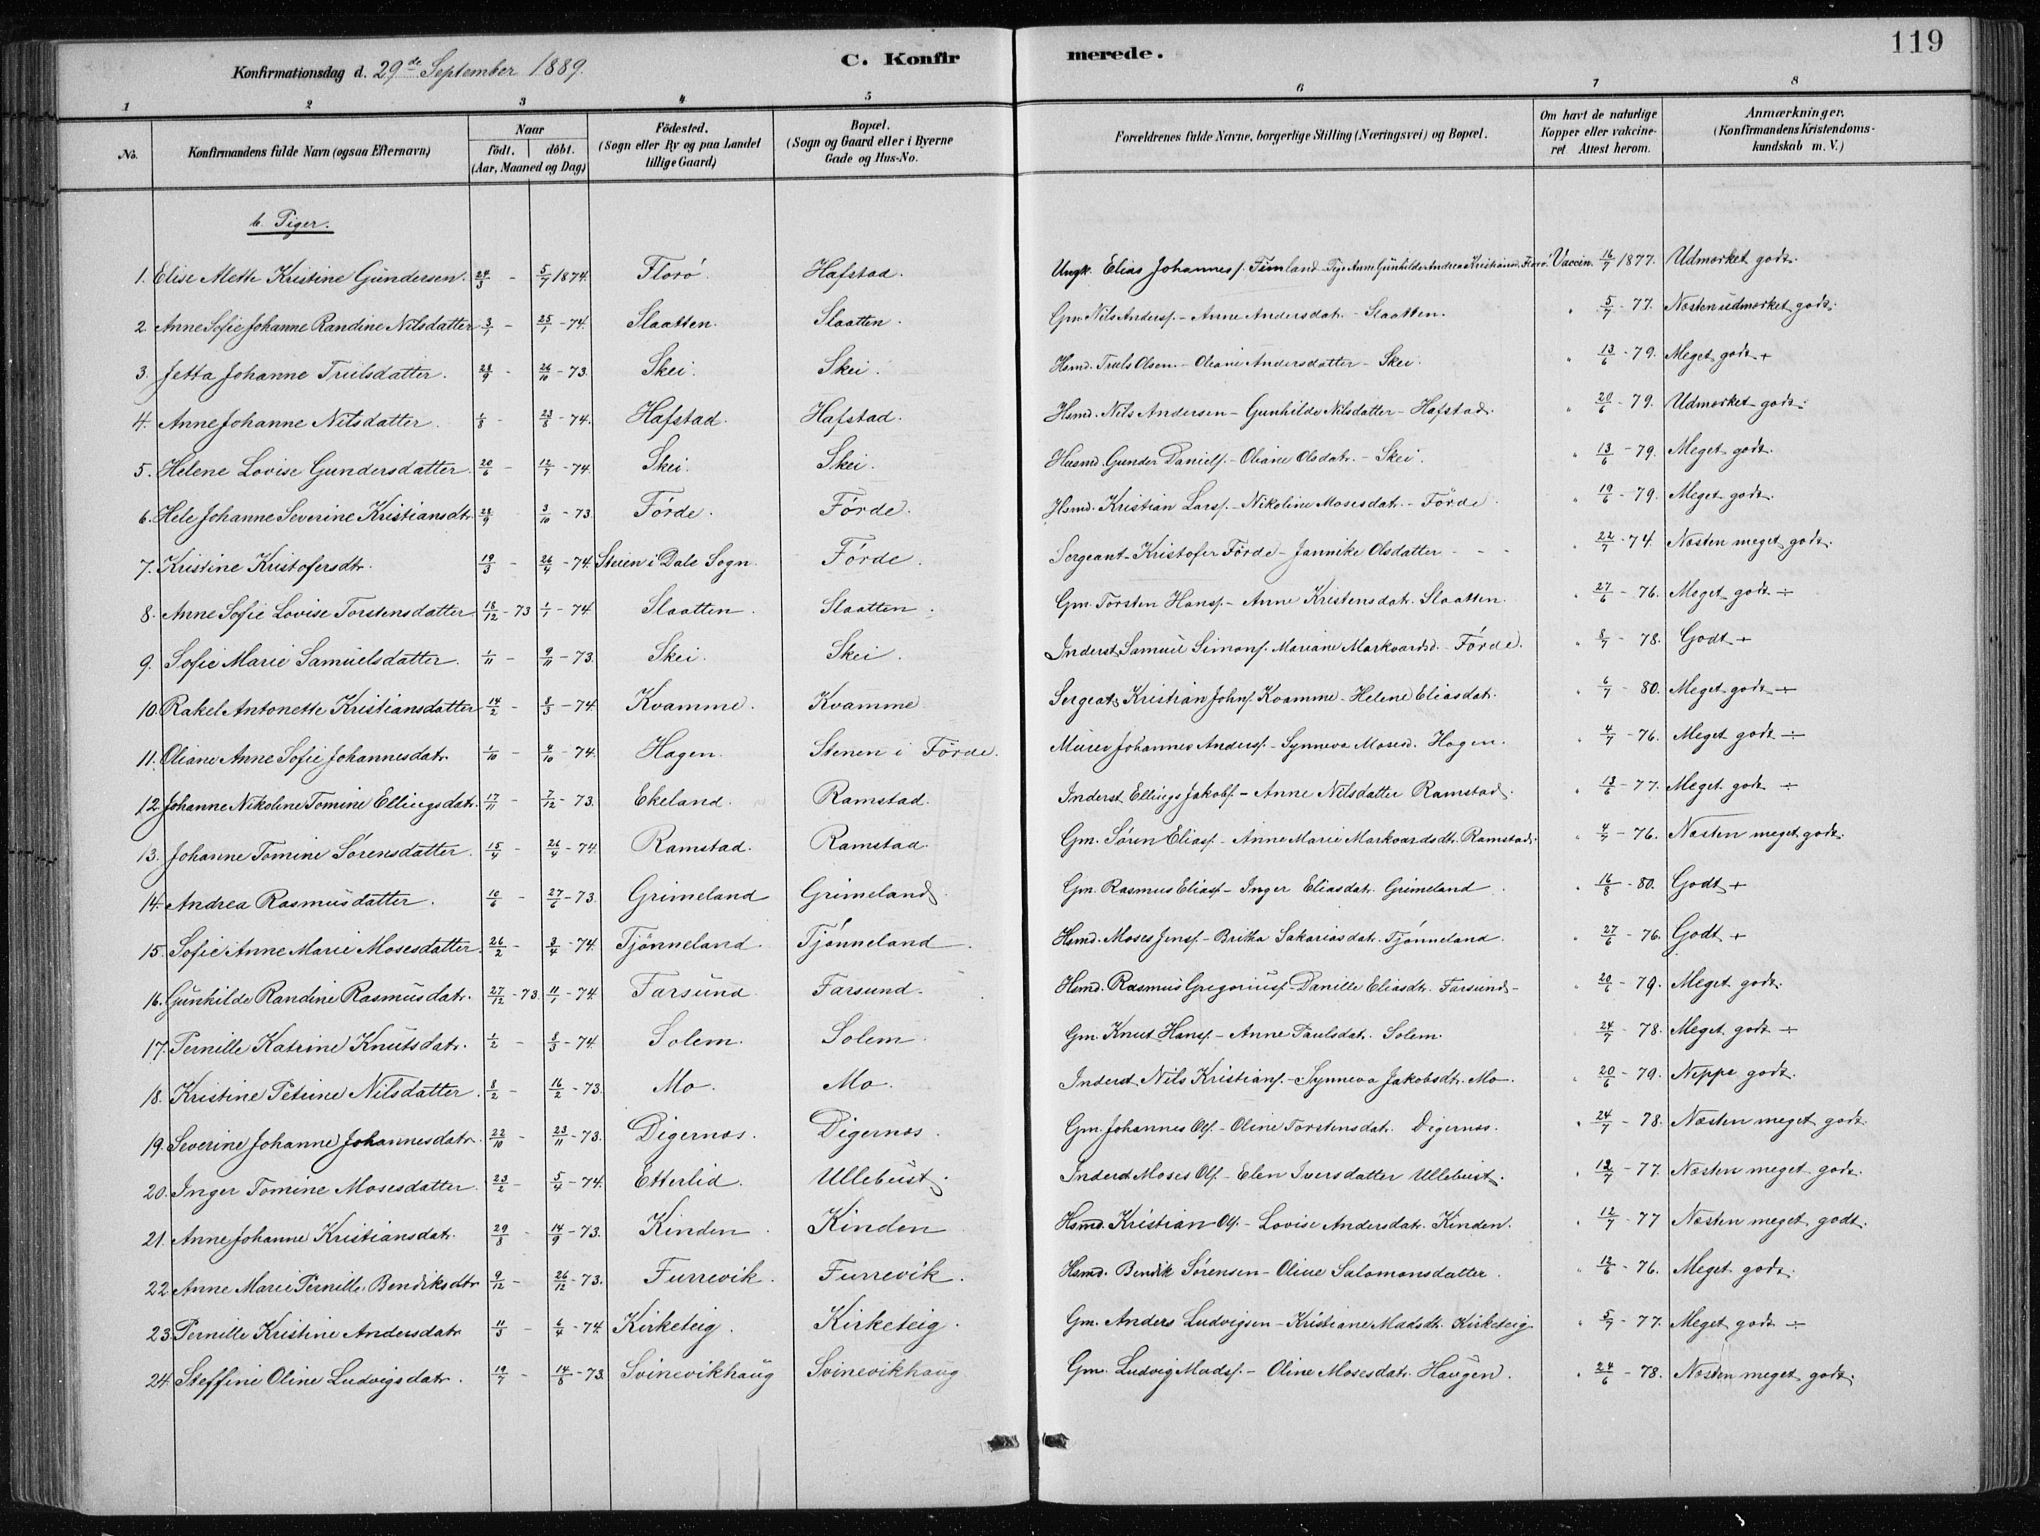 119
Konfirmationsdag d. 29de September 1889.
C. Konfirmerede.
1 2 3 4 5 6 7 8
No. Konfirmandens fulde Navn (ogsaa Efternavn) Naar født. døbt. (Aar, Maaned og Dag) Födested. (Sogn eller By og paa Landet tillige Gaard) Bopæl. (Sogn og Gaard eller i Byerne Gade og Hus-No. Forældrenes fulde Navne, borgerlige Stilling (Næringsvei) og Bopæl. Om havt de naturlige Kopper eller vaccineret Attest herom. Anmærkninger. (Konfirmandens Kristendomskundskab m. V.)
b. Piger.
1. Elise Mette Kristine Gundersen. 24/3 - 5/7 1874. Florö. Hafstad. Ungk. Elias Johannesf. Timland - Pige Anne Gunhilde Andrea Kristiansd. Florö. Vaccin. 16/7 1877. Udmærket godt.
2. Anne Sofie Johanne Randine Nilsdatter 3/7 - 25/7 - 74. Slaatten. Slaatten. Gm. Nils Andersf. - Anne Andersdatr. - Slaatten. " 5/7 - 77. Næsten udmærket godt.
3. Jetta Johanne Trulsdatter. 28/9 - 26/10 - 73. Skei. Skei. Hsmd. Truls Olsen. - Oleane Andersdatter - Skei. " 13/6 - 79. Meget godt +
4. Anne Johanne Nilsdatter. 1/8 - 23/8 - 74. Hafstad. Hafstad. Hsmd. Nils Andersen - Gunhilde Nilsdatter - Hafstad. " 20/6 - 79. Udmærket godt.
5. Helene Lovise Gundersdatter. 20/6 - 12/7 - 74. Skei. Skei. Husmd. Gunder Danielf. - Oliane Olsdatr. - Skei. " 13/6 - 79. Meget godt.
6. Hele Johanne Severine Kristiansdtr. 28/9 3/10 - 73. Förde. Förde. Hsmd. Kristian Larsf. - Nikoline Mosesdatr. - Förde. " 19/6 - 79. Meget godt.
7. Kristine Kristofersdtr. 19/3 - 26/4 - 74. Steien i Dale Sogn. Förde. Sergeant - Kristofer Förde - Jannike Olsdatter - - - " 22/7 - 74. Næsten meget godt.
8. Anne Sofie Lovise Torstensdatter 18/12 - 73 1/1 - 74 Slaatten. Slaatten. Gm. Torsten Hansf. - Anne Kristensdatr. Slaatten. " 27/6 - 76. Meget godt ÷
9. Sofie Marie Samuelsdatter. 1/11 - 9/11 - 73. Skei. Skei. Inderst Samuel Simonf. Mariane Markvardsd. - Förde. " 8/7 - 78. Godt +
10. Rakel Antonette Kristiansdatter 14/2 - 8/3 - 74. Kvamme. Kvamme. Sergeat. Kristian Johnf. Kvamme - Helene Eliasdatr. " 6/7 - 80. Meget godt ÷
11. Oliane Anne Sofie Johannesdatr. 1/10 - 4/10 - 74. Hagen. Stenen i Förde. Murer Johannes Andersf. - Synneva Mosesd. Hagen. " 4/7 - 76. Meget godt ÷
12. Johanne Nikoline Tomine Ellingsdatr. 17/11 - 7/12 - 73. Ekeland. Ramstad. Inderst Ellings Jakobf. - Anne Nilsdatter Ramstad. " 13/6 - 77. Meget godt ÷
13. Johanne Tomine Sørensdatter. 15/4 - 26/4 - 74. Ramstad. Ramstad. Gm. Søren Eliasf. - Anne Marie Markvardsdtr. Ramstad. " 4/7 - 76. Næsten meget godt.
14. Andrea Rasmusdatter. 10/6 - 27/6 - 73. Grimeland Grimeland. Gm. Rasmus Eliasf. - Inger Eliasdatr. Grimeland. " 16/8 - 80. Godt +
15. Sofie Anne Marie Mosesdatter. 26/2 - 3/4 - 74. Tjönneland. Tjönneland. Hsmd. Moses Jensf. - Britha Sakariasdatr. Tjönneland. " 27/6 - 76. Godt +
16. Gunhilde Randine Rasmusdatr. 27/12 - 73. 11/1 - 74. Farsund. Farsund. Hsmd. Rasmus Gregoriusf. - Danille Eliasdtr. Farsund - " 20/6 - 79. Meget godt.
17. Pernille Katrine Knutsdatr. 1/2 - 8/3 - 74. Solem. Solem. Gm. Knut Hansf. - Anne Paulsdatr. Solem. " 24/7 - 78. Meget godt ÷
18. Kristine Petrine Nilsdatter. 8/2 - 16/2 - 73. Mo. Mo. Inderst Nils Kristianf. - Synneva Jakobsdtr. Mo. " 20/6 - 79. Neppe godt.
19. Severine Johanne Johannesdatr. 22/10 - 23/11 - 73. Digernæs. Digernæs. Gm. Johannes Olf. - Oline Torstensdatr. Digernæs. " 24/7 - 78. Næsten meget godt.
20. Inger Tomine Mosesdatter. 23/2 - 5/4 - 74. Etterlid. Ullebust. Inderst Moses Olf. - Elen Iversdatter Ullebust. " 12/7 - 77. Næsten meget godt.
21. Anne Johanne Kristiansdatr. 29/8 - 14/9 - 73. Kinden. Kinden Hsmd. Kristian Olf. - Lovise Andersdatr. Kinden. " 12/7 - 77 Næsten meget godt.
22. Anne Marie Pernille Bendiksdtr 9/12 - 26/12 - 73. Furrevik. Furrevik. Hsmd. Bendik Sørensen - Oline Salomonsdatter. " 12/6 - 76. Meget godt.
23. Pernille Kristine Andersdatr 11/3 - 6/4 - 74. Kirketeig. Kirketeig. Gm. Anders Ludvigsen - Kristiane Madsdtr. Kirketeig " 5/7 - 77. Meget godt ÷
24. Steffine Oline Ludvigsdatr. 19/7 - 14/8 - 73. Svinevikhaug Svinevikhaug Gm. Ludvig Madsf. - Oline Mosesdatr. Haugen. " 24/6 - 78. Næsten meget godt.